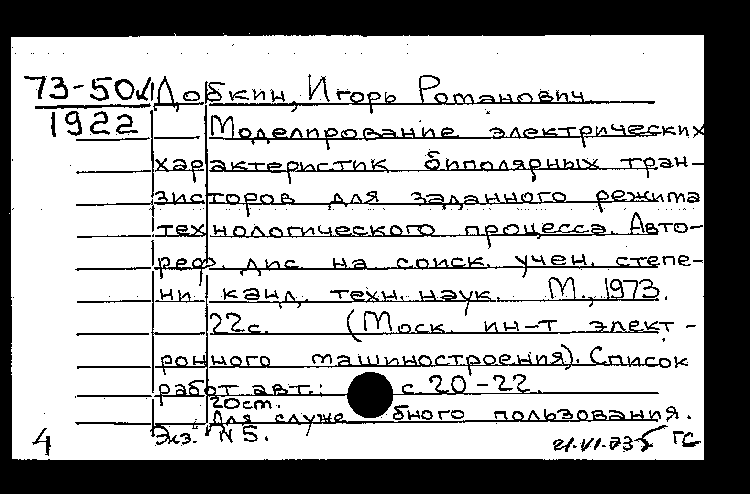 73-50 Добкин, Игорь Романович
1922 Моделирование электрических
характеристик биполярных тран-
зисторов для заданного режима
технологического процесса. Авто-
реф. дис на соиск. учен. степе-
ни канд. техн. наук. М., 1973.
22с. (Моск. ин-т элект-
ронного машиностроения). Список
работ авт.: с. 20-22.
20см.
Для служебного пользования.
4 Экз. N 5. ГС